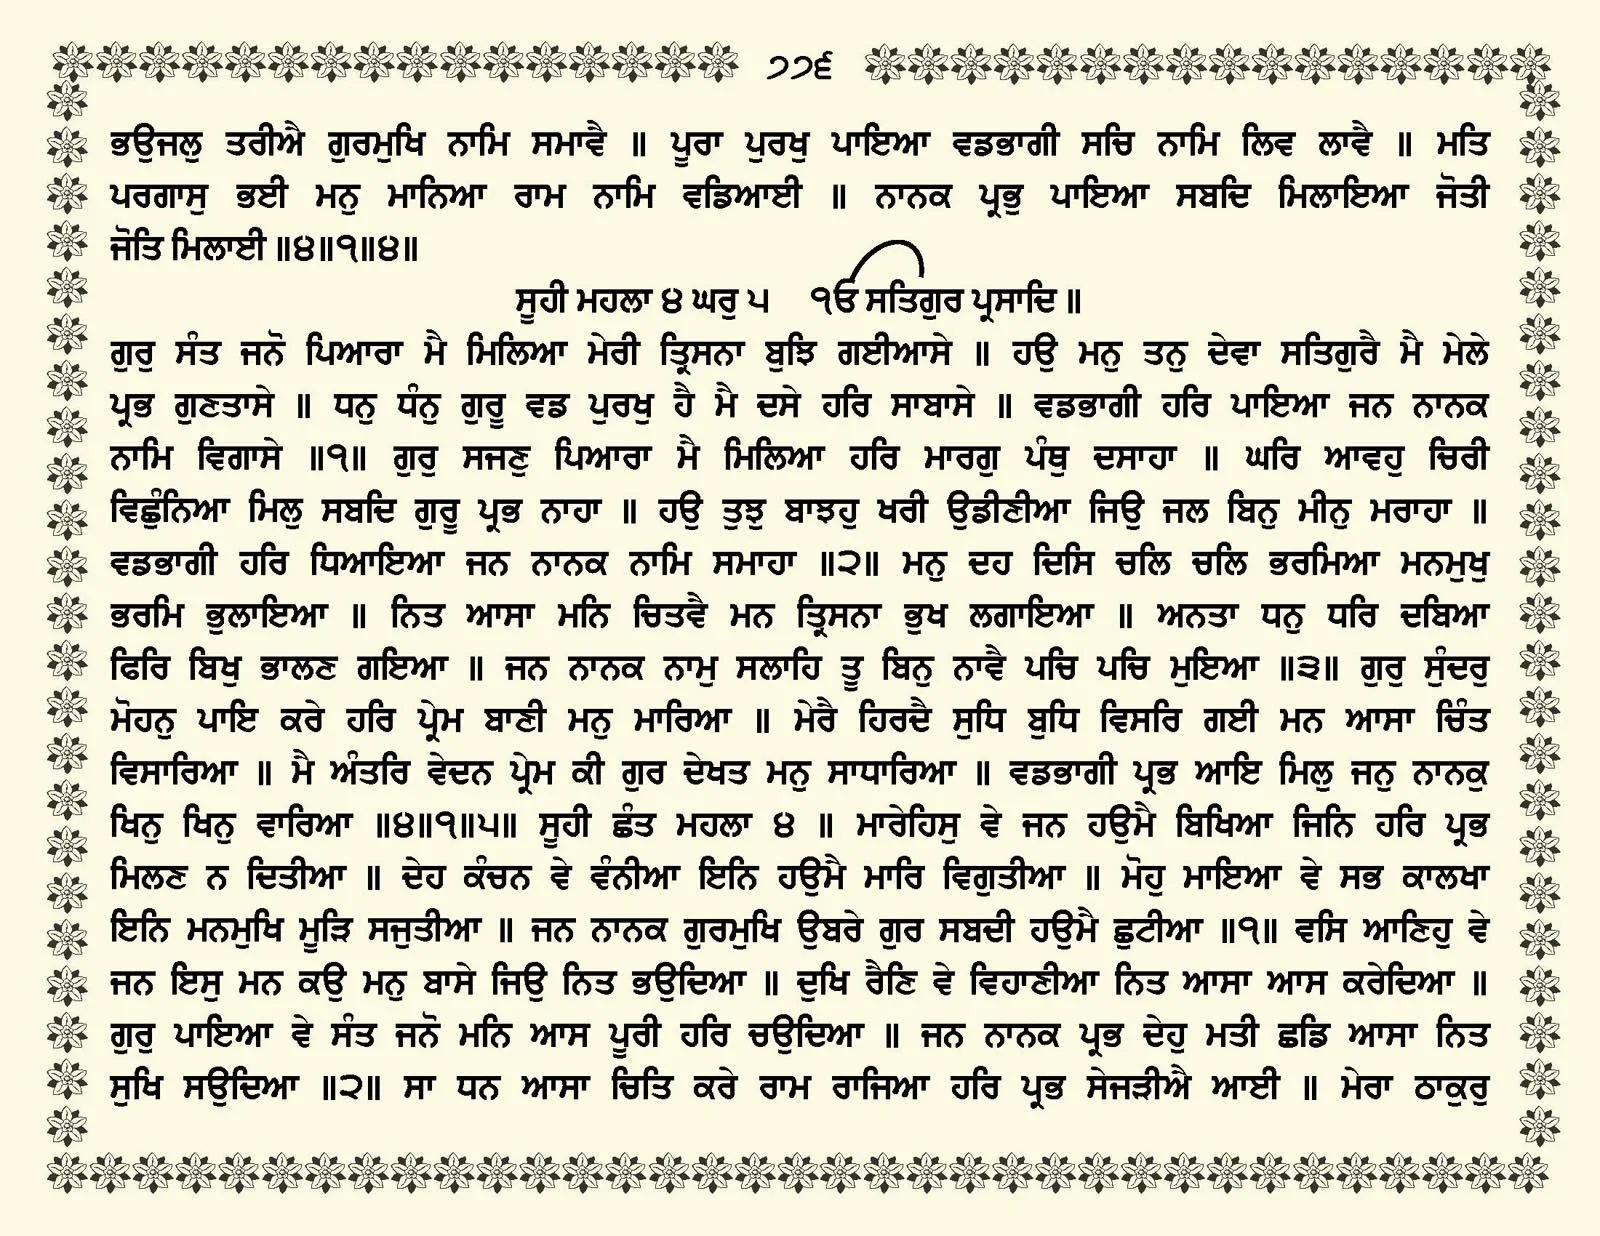 ੭੭੬
ਭਉਜਲੁ ਤਰੀਐ ਗੁਰਮੁਖਿ ਨਾਮਿ ਸਮਾਵੈ ॥ ਪੂਰਾ ਪੁਰਖੁ ਪਾਇਆ ਵਡਭਾਗੀ ਸਚਿ ਨਾਮਿ ਲਿਵ ਲਾਵੈ ॥ ਮਤਿ
ਪਰਗਾਸੁ ਭਈ ਮਨੁ ਮਾਨਿਆ ਰਾਮ ਨਾਮਿ ਵਡਿਆਈ ॥ ਨਾਨਕ ਪ੍ਰਭੁ ਪਾਇਆ ਸਬਦਿ ਮਿਲਾਇਆ ਜੋਤੀ
ਜੋਤਿ ਮਿਲਾਈ ॥੪॥੧॥੪॥
ਸੂਹੀ ਮਹਲਾ ੪ ਘਰੁ ੫ ੴ ਸਤਿਗੁਰ ਪ੍ਰਸਾਦਿ ॥
ਗੁਰੁ ਸੰਤ ਜਨੋ ਪਿਆਰਾ ਮੈ ਮਿਲਿਆ ਮੇਰੀ ਤ੍ਰਿਸਨਾ ਬੁਝਿ ਗਈਆਸੇ ॥ ਹਉ ਮਨੁ ਤਨੁ ਦੇਵਾ ਸਤਿਗੁਰੈ ਮੈ ਮੇਲੇ
ਪ੍ਰਭ ਗੁਣਤਾਸੇ ॥ ਧਨੁ ਧੰਨੁ ਗੁਰੂ ਵਡ ਪੁਰਖੁ ਹੈ ਮੈ ਦਸੇ ਹਰਿ ਸਾਬਾਸੇ ॥ ਵਡਭਾਗੀ ਹਰਿ ਪਾਇਆ ਜਨ ਨਾਨਕ
ਨਾਮਿ ਵਿਗਾਸੇ ॥੧॥ ਗੁਰੁ ਸਜਣੁ ਪਿਆਰਾ ਮੈ ਮਿਲਿਆ ਹਰਿ ਮਾਰਗੁ ਪੰਥੁ ਦਸਾਹਾ ॥ ਘਰਿ ਆਵਹੁ ਚਿਰੀ
ਵਿਛੁੰਨਿਆ ਮਿਲੁ ਸਬਦਿ ਗੁਰੂ ਪ੍ਰਭ ਨਾਹਾ ॥ ਹਉ ਤੁਝੁ ਬਾਝਹੁ ਖਰੀ ਉਡੀਣੀਆ ਜਿਉ ਜਲ ਬਿਨੁ ਮੀਨੁ ਮਰਾਹਾ ॥
ਵਡਭਾਗੀ ਹਰਿ ਧਿਆਇਆ ਜਨ ਨਾਨਕ ਨਾਮਿ ਸਮਾਹਾ ॥੨॥ ਮਨੁ ਦਹ ਦਿਸਿ ਚਲਿ ਚਲਿ ਭਰਮਿਆ ਮਨਮੁਖੁ
ਭਰਮਿ ਭੁਲਾਇਆ ॥ ਨਿਤ ਆਸਾ ਮਨਿ ਚਿਤਵੈ ਮਨ ਤ੍ਰਿਸਨਾ ਭੁਖ ਲਗਾਇਆ ॥ ਅਨਤਾ ਧਨੁ ਧਰਿ ਦਬਿਆ
ਫਿਰਿ ਬਿਖੁ ਭਾਲਣ ਗਇਆ ॥ ਜਨ ਨਾਨਕ ਨਾਮੁ ਸਲਾਹਿ ਤੂ ਬਿਨੁ ਨਾਵੈ ਪਚਿ ਪਚਿ ਮੁਇਆ ॥੩॥ ਗੁਰੁ ਸੁੰਦਰੁ
ਮੋਹਨੁ ਪਾਇ ਕਰੇ ਹਰਿ ਪ੍ਰੇਮ ਬਾਣੀ ਮਨੁ ਮਾਰਿਆ ॥ ਮੇਰੈ ਹਿਰਦੈ ਸੁਧਿ ਬੁਧਿ ਵਿਸਰਿ ਗਈ ਮਨ ਆਸਾ ਚਿੰਤ
ਵਿਸਾਰਿਆ ॥ ਮੈ ਅੰਤਰਿ ਵੇਦਨ ਪ੍ਰੇਮ ਕੀ ਗੁਰ ਦੇਖਤ ਮਨੁ ਸਾਧਾਰਿਆ ॥ ਵਡਭਾਗੀ ਪ੍ਰਭ ਆਇ ਮਿਲੁ ਜਨੁ ਨਾਨਕੁ
ਖਿਨੁ ਖਿਨੁ ਵਾਰਿਆ ॥੪॥੧॥੫॥ ਸੂਹੀ ਛੰਤ ਮਹਲਾ ੪ ॥ ਮਾਰੇਹਿਸੁ ਵੇ ਜਨ ਹਉਮੈ ਬਿਖਿਆ ਜਿਨਿ ਹਰਿ ਪ੍ਰਭ
ਮਿਲਣ ਨ ਦਿਤੀਆ ॥ ਦੇਹ ਕੰਚਨ ਵੇ ਵੰਨੀਆ ਇਨਿ ਹਉਮੈ ਮਾਰਿ ਵਿਗੁਤੀਆ ॥ ਮੋਹੁ ਮਾਇਆ ਵੇ ਸਭ ਕਾਲਖਾ
ਇਨਿ ਮਨਮੁਖਿ ਮੂੜਿ ਸਜੁਤੀਆ ॥ ਜਨ ਨਾਨਕ ਗੁਰਮੁਖਿ ਉਬਰੇ ਗੁਰ ਸਬਦੀ ਹਉਮੈ ਛੁਟੀਆ ॥੧॥ ਵਸਿ ਆਣਿਹੁ ਵੇ
ਜਨ ਇਸੁ ਮਨ ਕਉ ਮਨੁ ਬਾਸੇ ਜਿਉ ਨਿਤ ਭਉਦਿਆ ॥ ਦੁਖਿ ਰੈਣਿ ਵੇ ਵਿਹਾਣੀਆ ਨਿਤ ਆਸਾ ਆਸ ਕਰੇਦਿਆ ॥
ਗੁਰੁ ਪਾਇਆ ਵੇ ਸੰਤ ਜਨੋ ਮਨਿ ਆਸ ਪੂਰੀ ਹਰਿ ਚਉਦਿਆ ॥ ਜਨ ਨਾਨਕ ਪ੍ਰਭ ਦੇਹੁ ਮਤੀ ਛਡਿ ਆਸਾ ਨਿਤ
ਸੁਖਿ ਸਉਦਿਆ ॥੨॥ ਸਾ ਧਨ ਆਸਾ ਚਿਤਿ ਕਰੇ ਰਾਮ ਰਾਜਿਆ ਹਰਿ ਪ੍ਰਭ ਸੇਜੜੀਐ ਆਈ ॥ ਮੇਰਾ ਠਾਕੁਰੁ